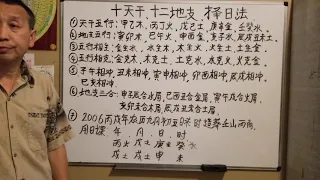 十天干 十二地支 择日法
①天干五行:甲乙木,丙丁火,戊己土,庚辛金,壬癸水。
②地支五行:寅卯木,巳午火,申酉金,亥子水,辰戌丑未土
③五行相生:金生水,水生木,木生火,火生土,土生金
④五行相克:金克木,木克土,土克水,水克火,火克金
⑤子午相冲,丑未相冲,寅申相冲,卯酉相冲,辰戌相冲
巳亥相冲。
⑥地支三合:申子辰合水局,巳酉丑合金局,寅午戌合火局
亥卯未合木局,
⑦2006丙戌年农历九月初五日未时造葬壬山丙向,
用日课 年 月 日 时
丙火 戊土 庚金 癸水
戌土 戌土 申 未